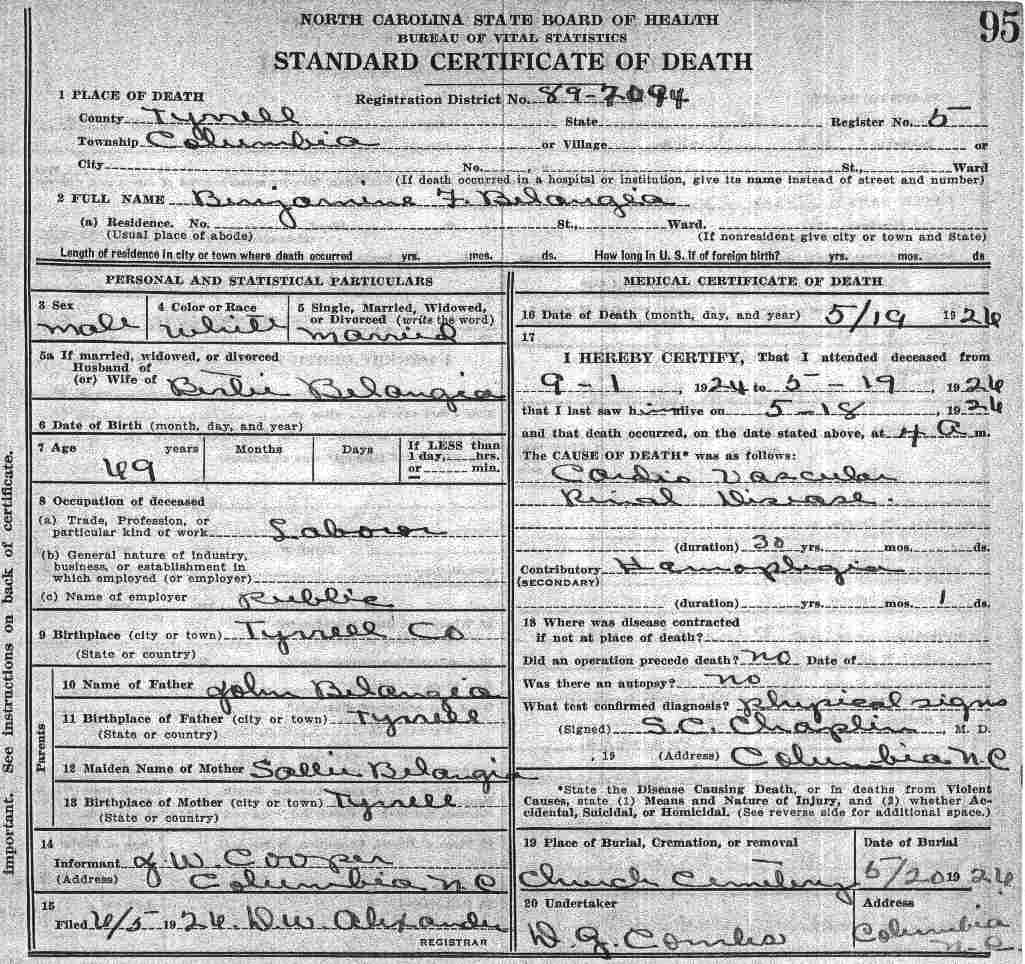 NORTH CAROLINA STATE BOARD OF HEALTH
BUREAU OF VITAL STATISTICS
95
STANDARD CERTIFICATE OF DEATH
1 PLACE OF DEATH
Registration District No. 89-7094
County Tyrrell State Register No. 5
Township Columbia or Village or
City No. St., Ward
(If death occurred in a hospital or institution, give its name instead of street and number)
2 FULL NAME Benjamine F. Belangia
(a) Residence. No. St., Ward.
(Usual place of abode) (If nonresident give city or town and State)
Length of residence in city or town where death occurred yrs. mos. ds. How long in U. S. if of foreign birth? yrs. mos. ds
PERSONAL AND STATISTICAL PARTICULARS
3 Sex 4 Color or Race 5 Single, Married, Widowed,
or Divorced (write the word)
Male White Married
5a If married, widowed, or divorced
Husband of
(or) Wife of Belangia
6 Date of Birth (month, day, and year)
7 Age years Months Days If LESS than
1 day, hrs.
or min.
69
8 Occupation of deceased
(a) Trade, Profession, or
particular kind of work Laborer
(b) General nature of industry,
business, or establishment in
which employed (or employer)
(c) Name of employer Public
9 Birthplace (city or town) Tyrrell Co
(State or country)
Parents
10 Name of Father John Belangia
11 Birthplace of Father (city or town) Tyrrell
(State or country)
12 Maiden Name of Mother Sallie Belangia
13 Birthplace of Mother (city or town) Tyrrell
(State or country)
14
Informant J. W. Cooper
(Address) Columbia NC
15
Filed 6/5 1926 D. W. Alexander
REGISTRAR
MEDICAL CERTIFICATE OF DEATH
16 Date of Death (month, day, and year) 5/19 1926
17
I HEREBY CERTIFY, That I attended deceased from
9-1, 1924 to 5-19, 1926
that I last saw him alive on 5-18, 1926
and that death occurred, on the date stated above, at 4 a m.
The CAUSE OF DEATH* was as follows:
Cardio Vascular
Renal Disease.
(duration) 30 yrs. mos. ds.
Contributory Hemaplegia
(SECONDARY)
(duration) yrs. mos. 1 ds.
18 Where was disease contracted
if not at place of death?
Did an operation precede death? no Date of
Was there an autopsy? no
What test confirmed diagnosis? physical signs
(Signed) S.C. Chaplin, M. D.
, 19 (Address) Columbia NC
*State the Disease Causing Death, or in deaths from Violent
Causes, state (1) Means and Nature of Injury, and (2) whether Ac-
cidental, Suicidal, or Homicidal. (See reverse side for additional space.)
19 Place of Burial, Cremation, or removal Date of Burial
Church Cemetery 5/20 1926
20 Undertaker Address
W. J. Combs Columbia
N.C.
Important. See instructions on back of certificate.